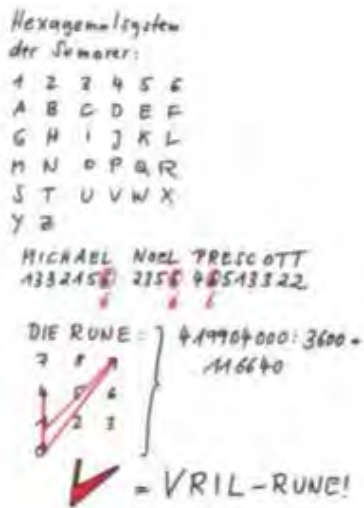 Hexagemalsystem
der Sumerer:
1 2 3 4 5 6
A B C D E F
G H I J K L
M N O P Q R
S T U V W X
Y Z
MICHAEL NOEL PRESCOTT
1332156 2356 46513322
6 6 6
DIE RUNE = 419904000: 3600 =
116640
7 8 9
4 5 6
1 2 3
0
= VRIL-RUNE!